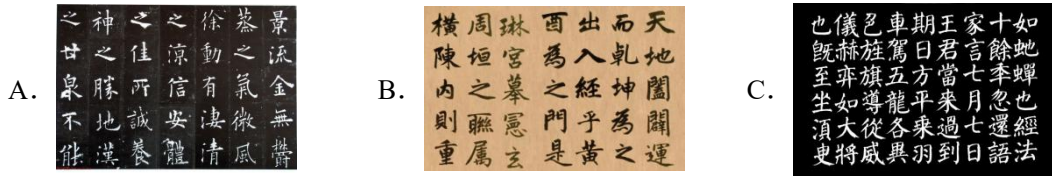 A.
景流金無鬱
蒸之氣微風
徐動有淒清
之涼信安體
之佳所誠養
神之勝地漢
之甘泉不能
B.
天地闔闢運
而乹坤為之
出入經乎黃
酉為之門是
琳宮摹憲玄
周垣之聯属
橫陳内則重
C.
如虵蟬也經法
十餘季忽還語
家言七月七日
王君當來過到
期日方平乘羽
車駕五龍各異
色旌旗導從威
儀赫弈如大將
也旣至坐湏叟